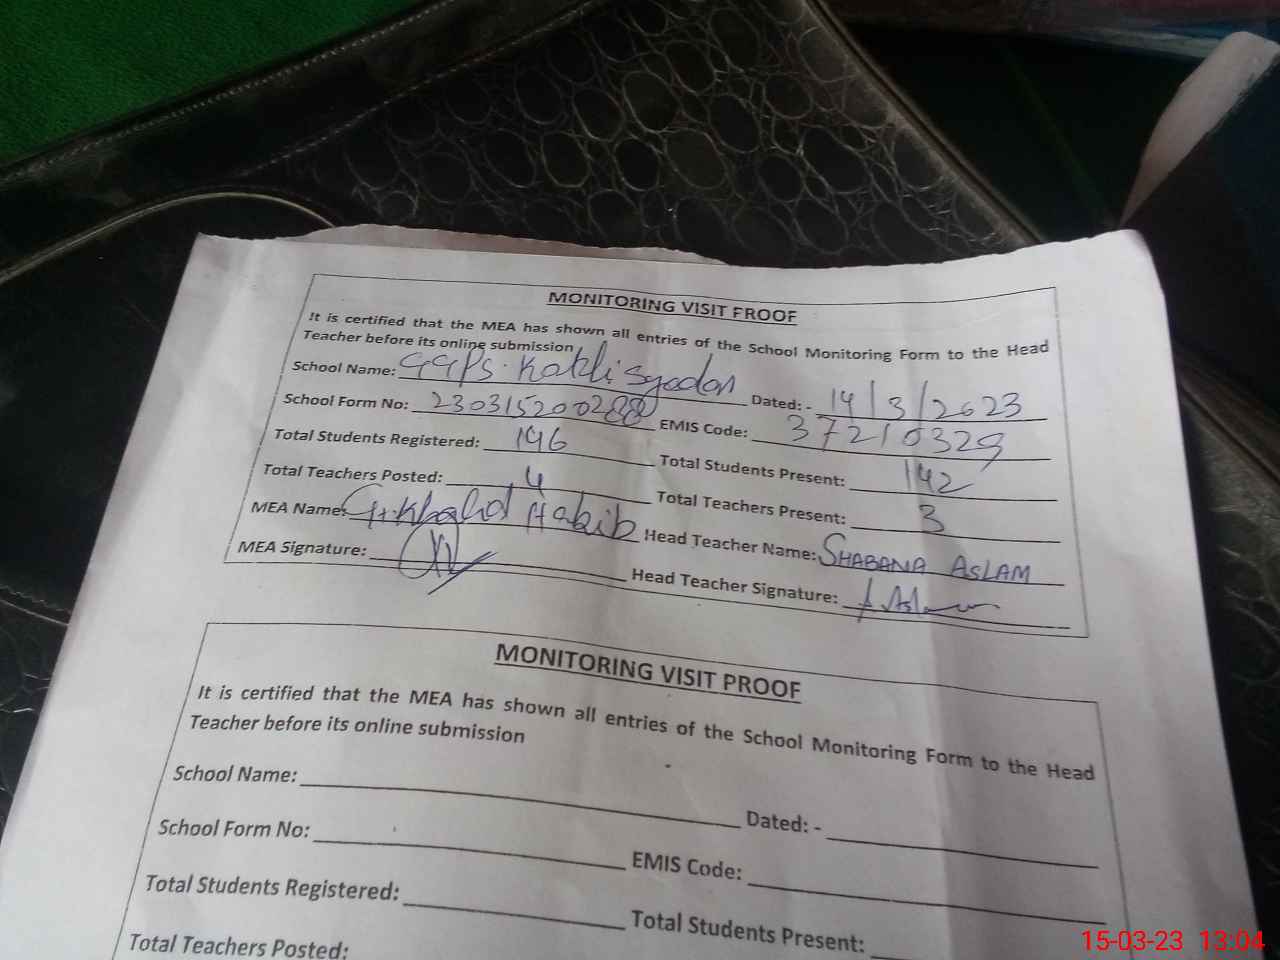 MONITORING VISIT PROOF
It is certified that the MEA has shown all entries of the School Monitoring Form to the Head
Teacher before its online submission
School Name: GGPS. Kakli Syedan Dated: - 14/3/2023
School Form No: 230315200288 EMIS Code: 37210329
Total Students Registered: 196 Total Students Present: 142
Total Teachers Posted: 4 Total Teachers Present: 3
MEA Name: Gh. Khalid Habib Head Teacher Name: SHABANA ASLAM
MEA Signature: Head Teacher Signature: Aslam
MONITORING VISIT PROOF
It is certified that the MEA has shown all entries of the School Monitoring Form to the Head
Teacher before its online submission
School Name: Dated: -
School Form No: EMIS Code:
Total Students Registered: Total Students Present:
Total Teachers Posted:
15-03-23 13:04